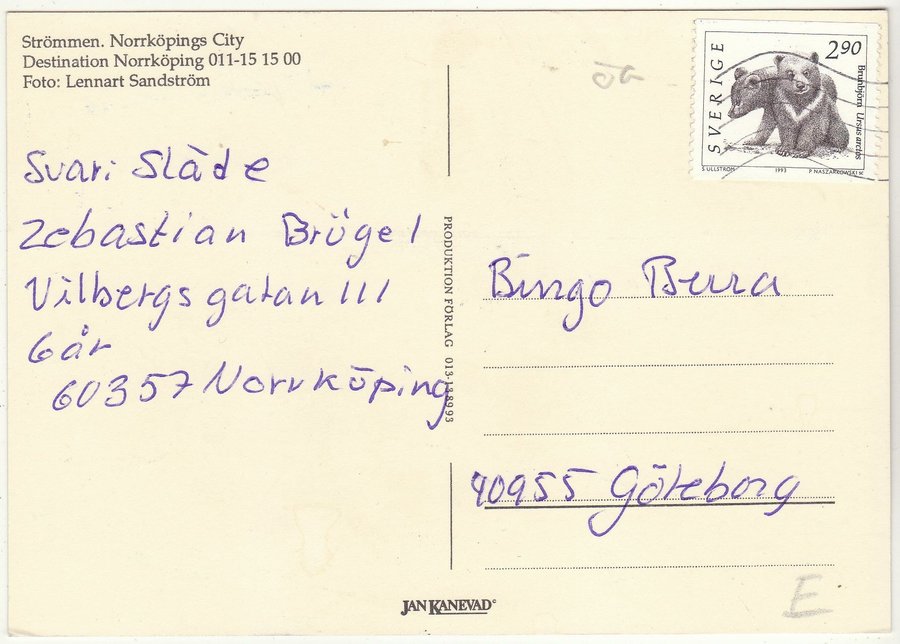 Strömmen. Norrköpings City
Destination Norrköping 011-15 15 00
Foto: Lennart Sandström
SVERIGE
2.90
Brunbjörn Ursus arctos
S ULLSTRÖM 1993 P NASZARKOWSKI SC
Svari Släde
Zebastian Brügel
Vilbergsgatan 111
6år
60357 Norrköping
PRODUKTION FÖRLAG 013-13 89 93
Bingo Berra
40955 Göteborg
E
JAN KANEVAD